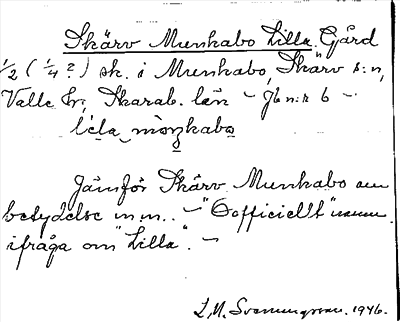 Skärv Munkabo Lilla. Gård
1/2 (1/4?) sk. i Munkabo, Skärv s:n,
Valle hr, Skarab. län - Jb n:r 6 -
lícla mòŋkabo
Jämför Skärv Munkabo om
betydelse m.m.. - "Oofficiellt" namn
ifråga om "Lilla". -
L.M. Svanungsson. 1946.